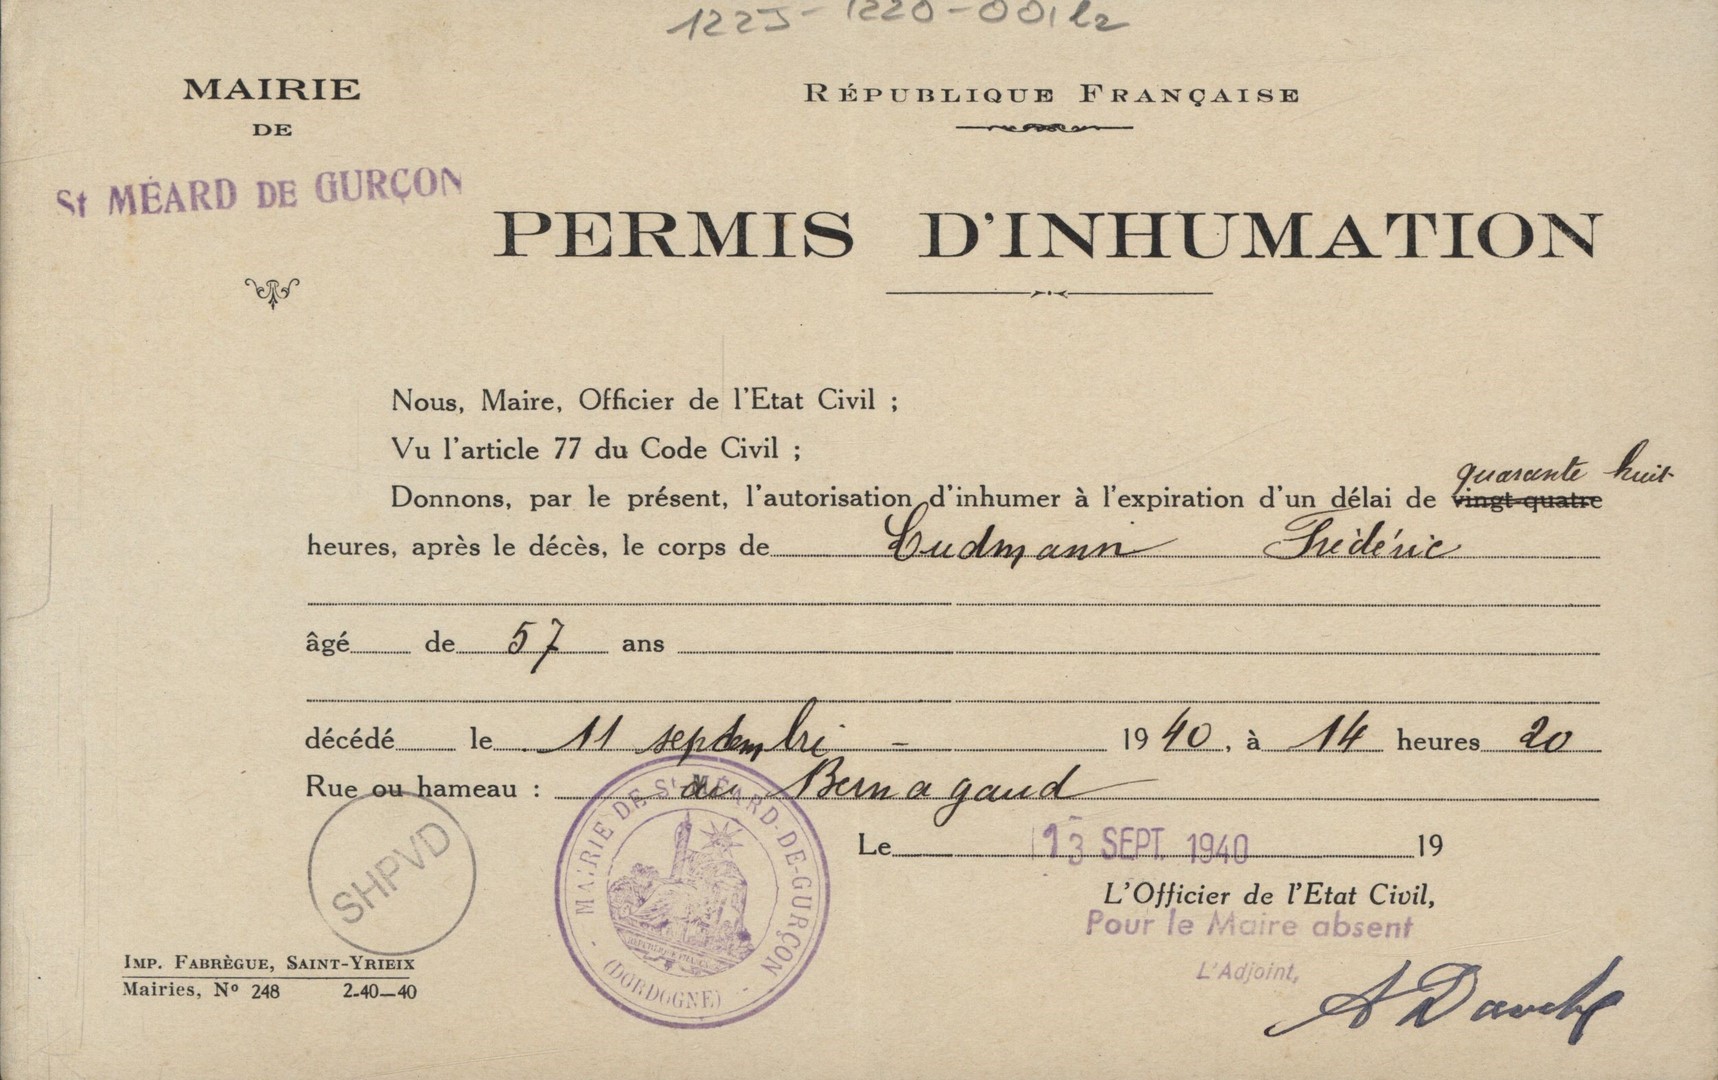 1223-1220-001
MAIRIE
DE
St MÉARD DE GURÇON
RÉPUBLIQUE FRANÇAISE
PERMIS D'INHUMATION
Nous, Maire, Officier de l'Etat Civil ;
Vu l'article 77 du Code Civil ;
quarante huit
Donnons, par le présent, l'autorisation d'inhumer à l'expiration d'un délai de vingt-quatre
heures, après le décès, le corps de Ludmann Frédéric
âgé de 57 ans
décédé le 11 septembre - 1940, à 14 heures 20
Rue ou hameau : au Bernagaud
Le 13 SEPT. 1940 19
L'Officier de l'Etat Civil,
Pour le Maire absent
L'Adjoint,
SHPVD
MAIRIE DE St MÉARD-DE-GURÇON
(DORDOGNE)
IMP. FABRÈGUE, SAINT-YRIEIX
Mairies, No 248 2-40—40